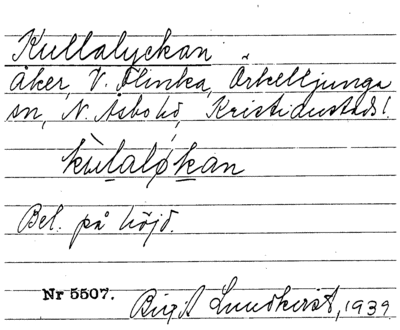 Kullalyckan
åker, V. Flinka, Örkelljunga
sn, N. Åsbo hd, Kristianstads l.
kùlaløkan
Bel. på höjd.
Nr 5507.
Birgit Lundkvist, 1939